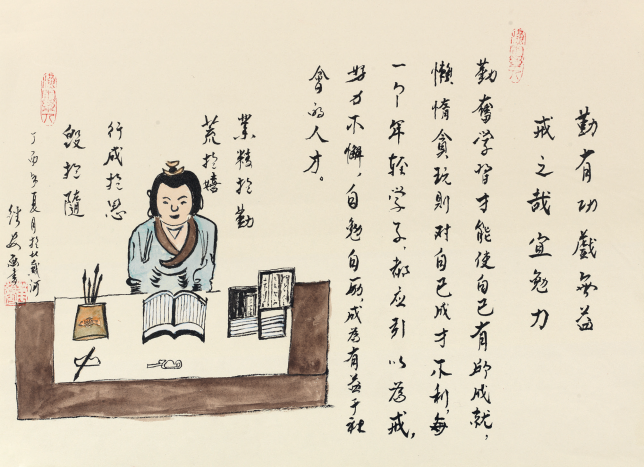 勤有功戲無益
戒之哉宜勉力
勤奮学習才能使自己有所成就，
懒惰貪玩則对自己成才不利，每
一个年轻学子，都应引以為戒，
努力不懈，自勉自励，成為有益于社
會的人才。
業精於勤
荒於嬉
行成於思
毁於隨
丁酉年夏月於北戴河